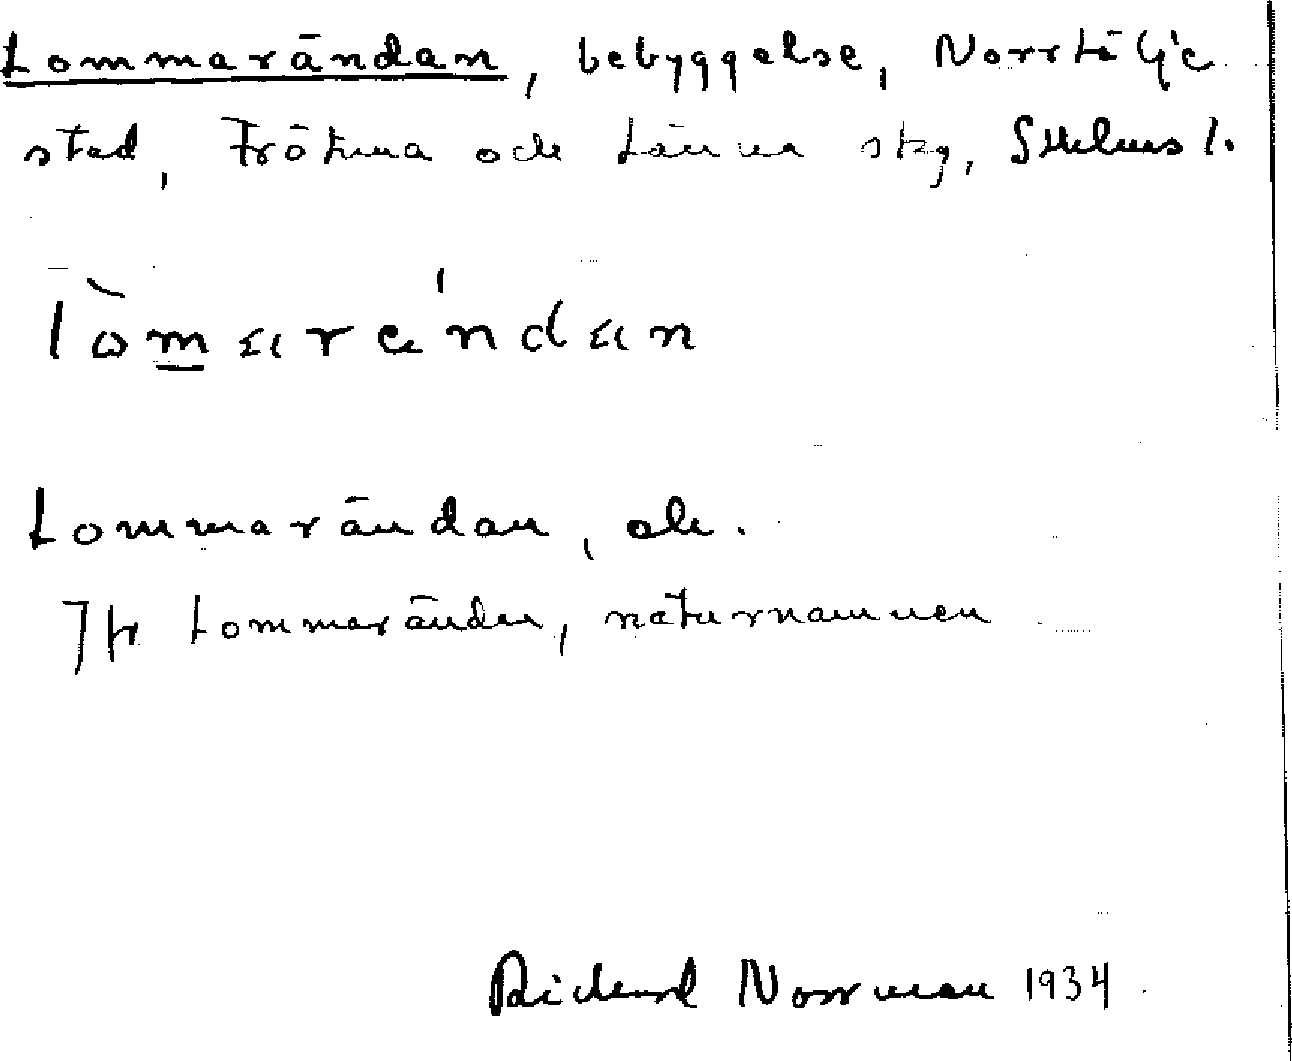 Lommarändan, bebyggelse, Norrtälje
stad, Frötuna och Länna skg, Sthlms l.
lò̀m̲arän'dan
Lommarändan, ole.
Jfr Lommaränden, naturnamnen
Richard Norrman 1934